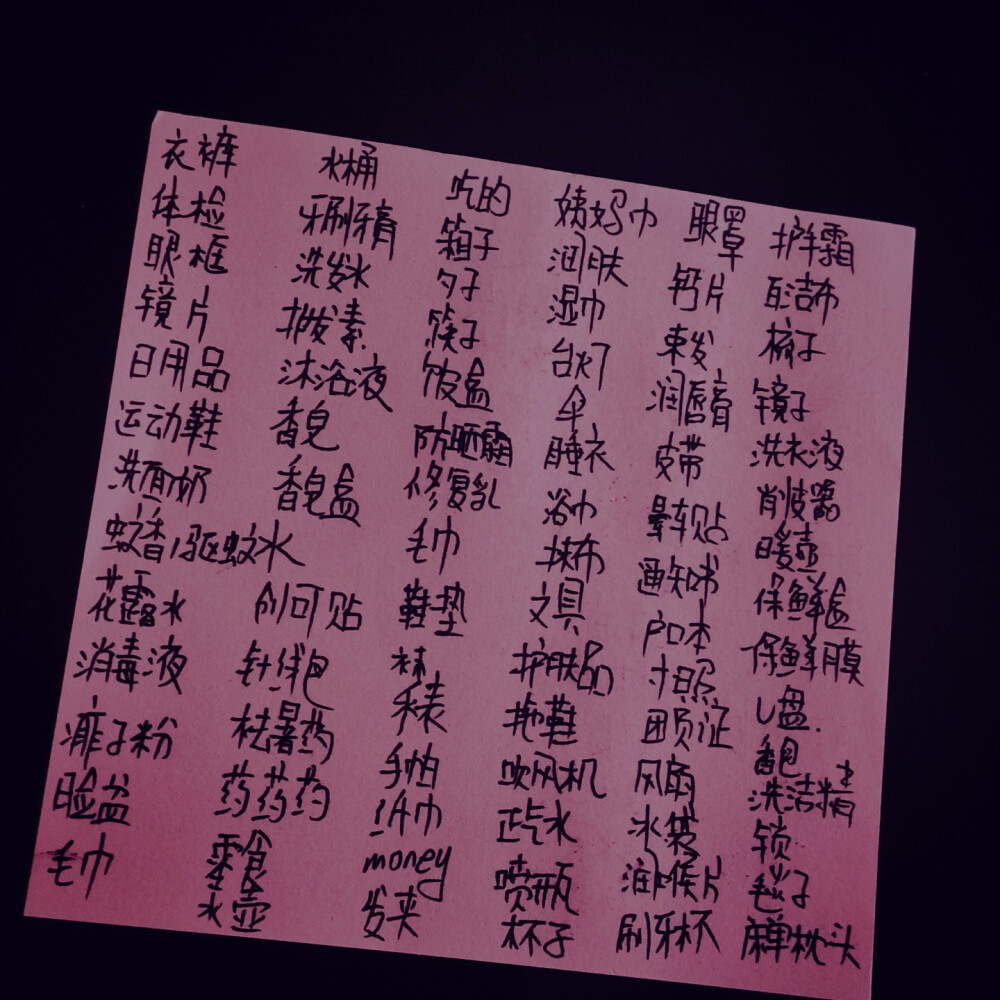 衣裤
体检
眼框
镜片
日用品
运动鞋
洗面奶
蚊香/驱蚊水
花露水
消毒液
痱子粉
脸盆
毛巾
水桶
牙刷牙膏
洗发水
护发素
沐浴液
香皂
香皂盒
创可贴
针线包
祛暑药
药药药
零食
水壶
吃的
箱子
勺子
筷子
饭盒
防晒霜
修复乳
毛巾
鞋垫
袜
手表
手帕
纸巾
money
发夹
姨妈巾
润肤
湿巾
台灯
伞
睡衣
浴巾
抹布
文具
护肤品
拖鞋
吹风机
正气水
喷瓶
杯子
眼罩
钙片
束发
润唇膏
皮带
晕车贴
通知书
户口本
寸照
团员证
风扇
冰袋
润喉片
刷牙杯
护手霜
百洁布
梳子
镜子
洗衣液
削皮器
暖壶
保鲜盒
保鲜膜
U盘.
洗洁精
锁
毯子
枕头